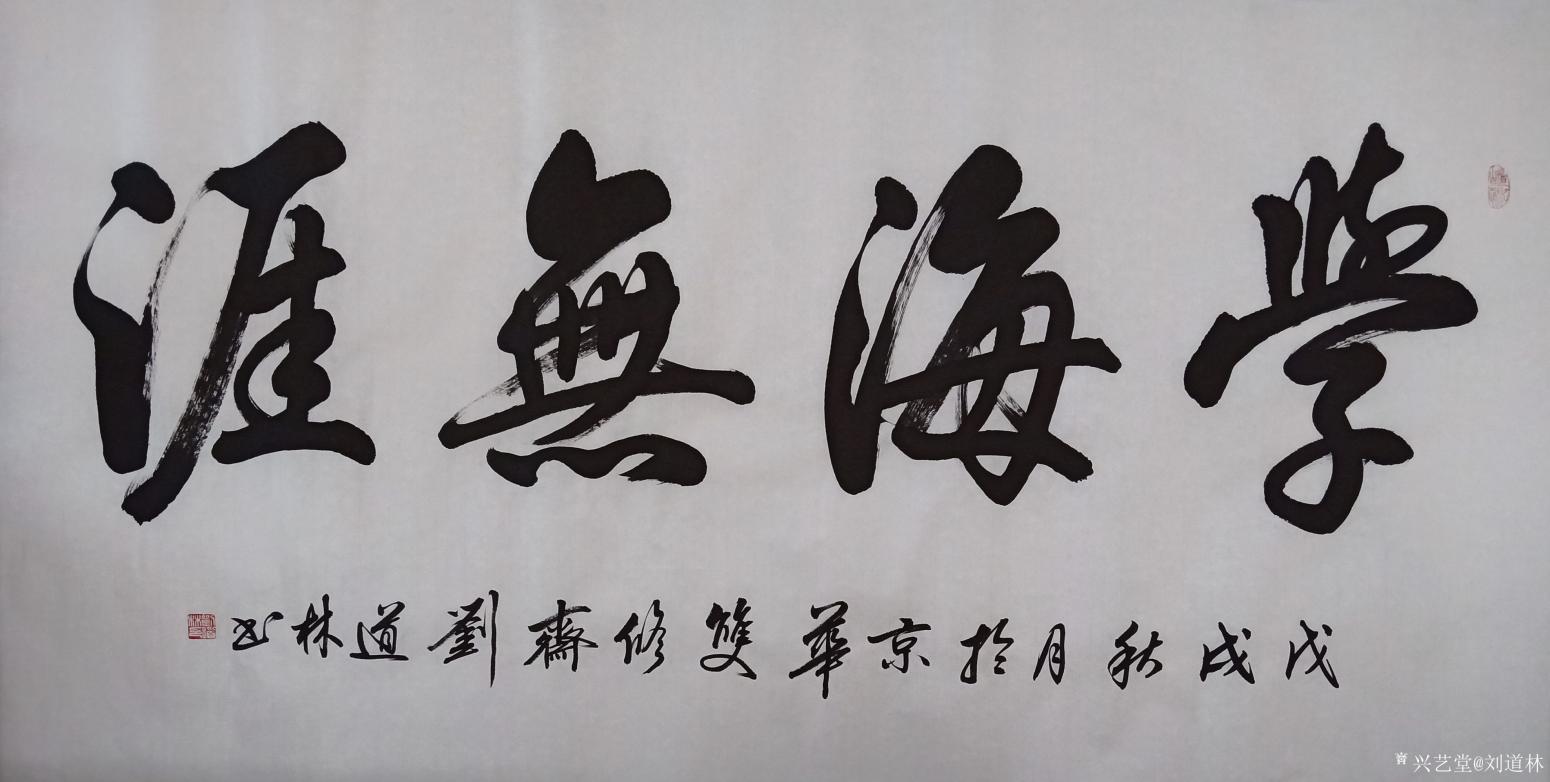 學海無涯
戊戌秋月於京華雙修齋劉道林书
兴艺堂@刘道林